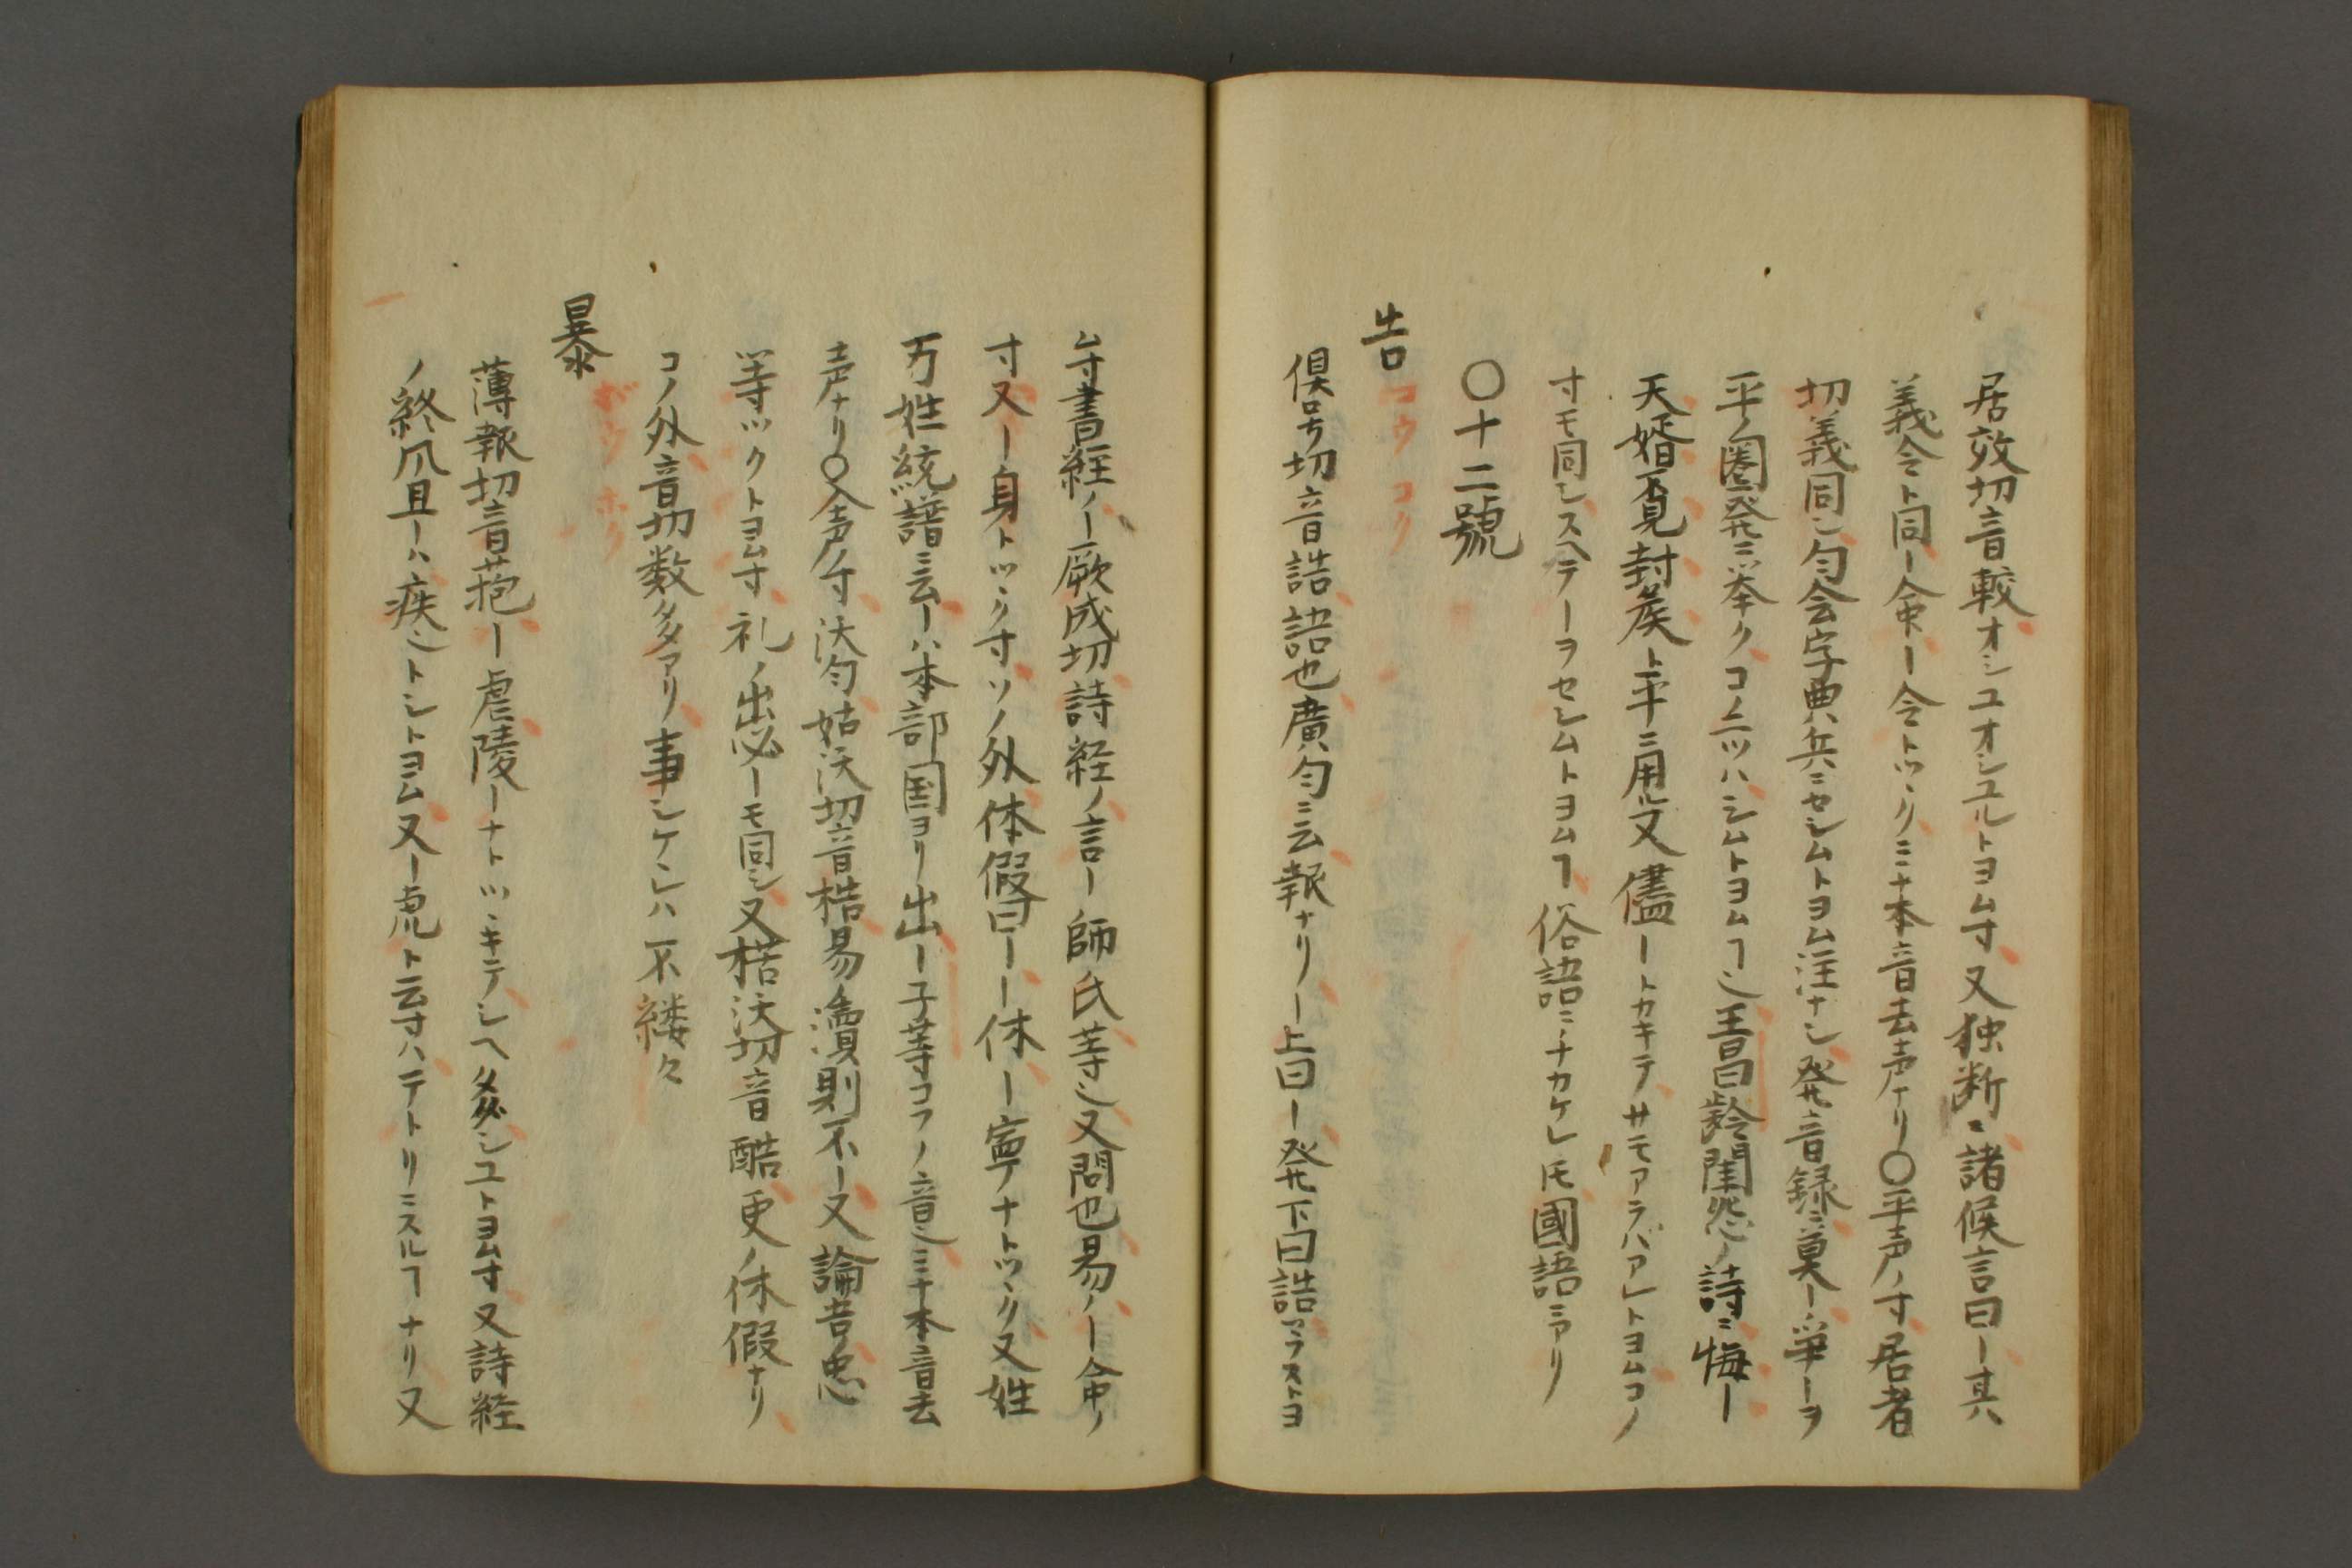 居效切音較オシユオシユルトヨム寸又独断ニ諸候言曰ー其
義令ト同ー命ー令トツヽクミナ本音去声ナリ〇平声ノ寸居者
切義同シ匀会字典共ニセシムトヨム注ナシ発音録ニ莫ー筆ーヲ
平ノ圏発ニ挙クコノ二ツハシムトヨムヿシ王昌齢閨怨ノ詩ニ悔ー
夫婿覓封矦ト平ニ用ル又儘ートカキテサモアラバアレトヨムコノ
寸モ同シスヘテーヲセシムトヨムヿ俗語ニナカケレ𪜈國語ニアリ
〇十二號
告
コウ コク
倶号切音誥語也廣匀ニ云報ナリー上曰ー発下曰誥ツラストヨ
ム寸書経ノー厥成切詩経ノ言ー師氏䓁シ又問也易ノー命ノ
寸又ー身トツヽク寸ソノ外休假曰ーー休ー寧ナトツヽク又姓
万姓統譜ニ云ーハ本部国ヨリ出ー子䓁コフノ音シミナ本音去
声ナリ〇入声ノ寸沃匀姑沃切音梏易ノ瀆則不ー又論吾忠
等ツクトヨム寸礼ノ出必ーモ同シ又枯沃切音酷吏ノ休假ナリ
コノ外音切数多アリ事シケケレハ不縷々
暴
ボウ ホク
薄報切音菢ー虐陵ーナトツヽキテシヘタゲシユトヨム寸又詩経
ノ終风且ーハ疾シトシトヨム又ー虎ト云寸ハテトリニスルヿナリ又